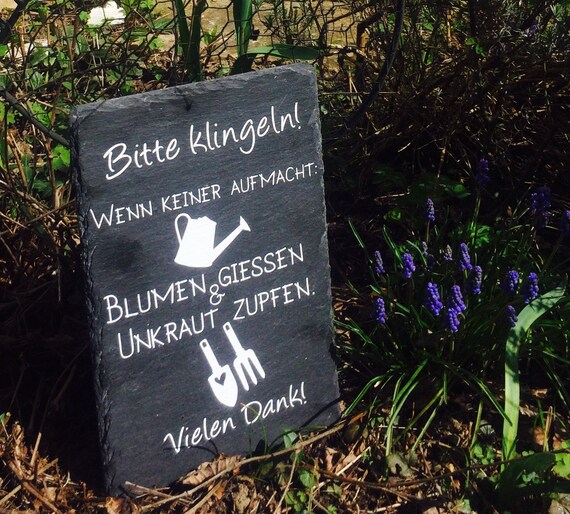 Bitte klingeln!
WENN KEINER AUFMACHT:
BLUMEN GIESSEN
&
UNKRAUT ZUPFEN.
Vielen Dank!